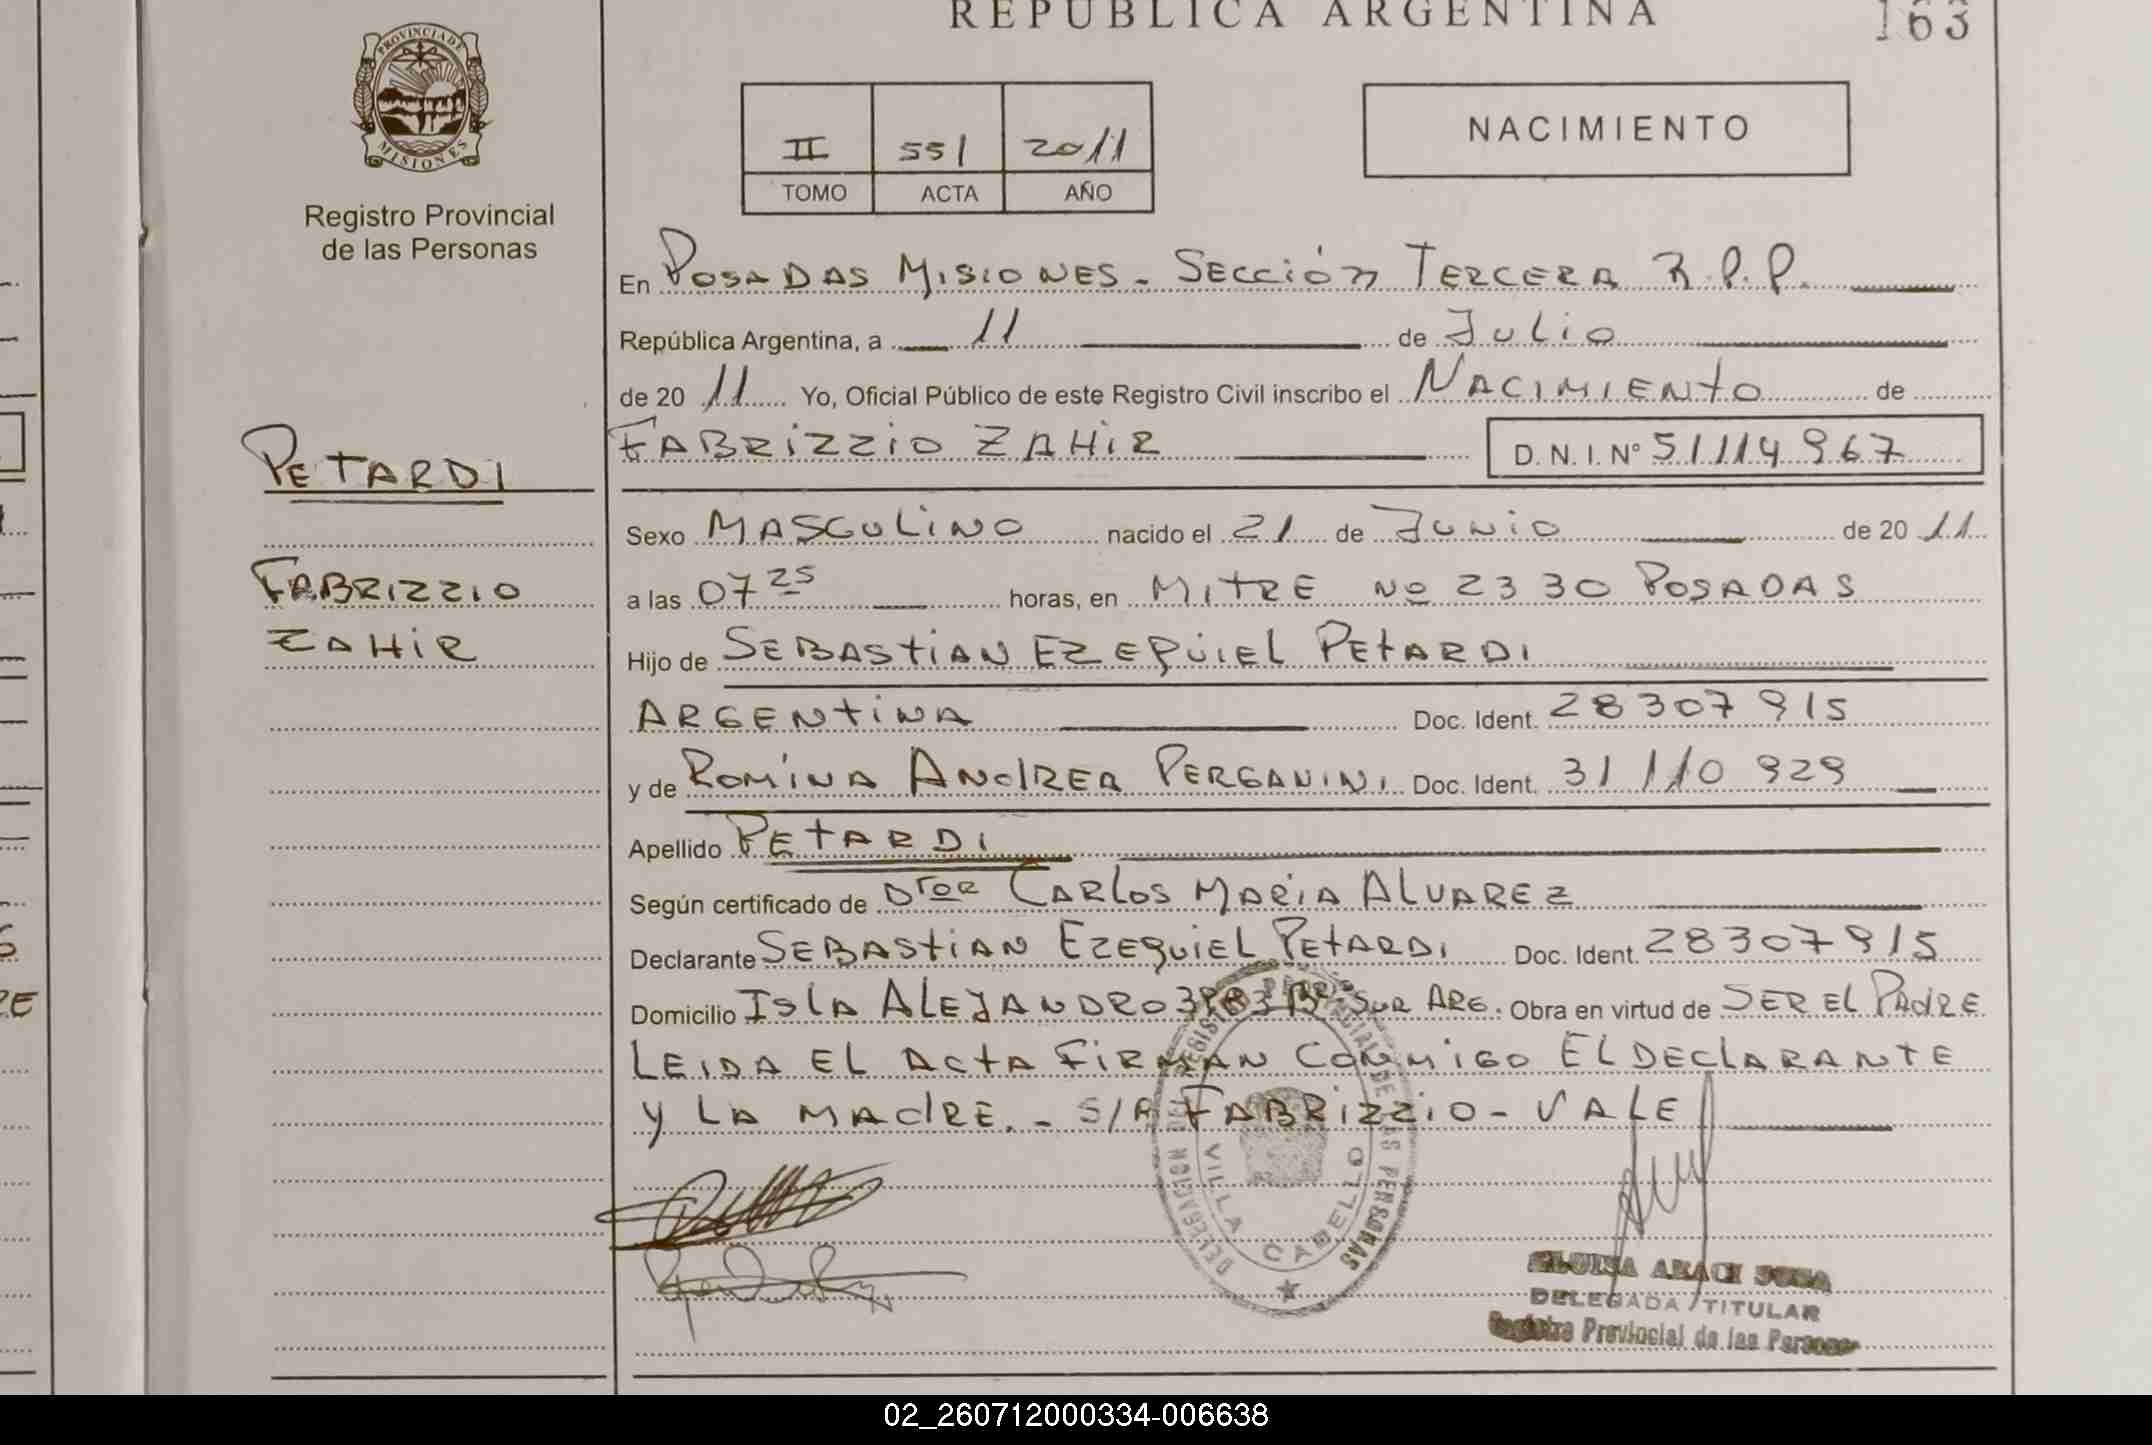 REPUBLICA ARGENTINA
163
PROVINCIA DE MISIONES
Registro Provincial
de las Personas
II 551 2011
TOMO ACTA AÑO
NACIMIENTO
En POSADAS MISIONES - SECCIÓN TERCERA R.P.P.
República Argentina, a 11 de JULIO
de 20 11 Yo, Oficial Público de este Registro Civil inscribo el NACIMIENTO de
FABRIZZIO ZAHIR D. N. I. Nº 51114967
PETARDI
FABRIZZIO
ZAHIR
Sexo MASCULINO nacido el 21 de JUNIO de 20 11
a las 07 25 horas, en MITRE Nº 2330 POSADAS
Hijo de SEBASTIAN EZEQUIEL PETARDI
ARGENTINA Doc. Ident. 28307915
y de ROMINA ANDREA PERGANINI Doc. Ident. 31110929
Apellido PETARDI
Según certificado de Dtor CARLOS MARIA ALVAREZ
Declarante SEBASTIAN EZEQUIEL PETARDI Doc. Ident. 28307915
Domicilio ISLA ALEJANDRO Bº SUR ARG. Obra en virtud de SER EL PADRE
LEIDA EL ACTA FIRMAN CONMIGO EL DECLARANTE
Y LA MADRE. - S/R FABRIZZIO - VALE
DELEGACION DEL REGISTRO PROVINCIAL DE LAS PERSONAS
VILLA CABELLO
DELEGADA TITULAR
Registro Provincial de las Personas
02_260712000334-006638